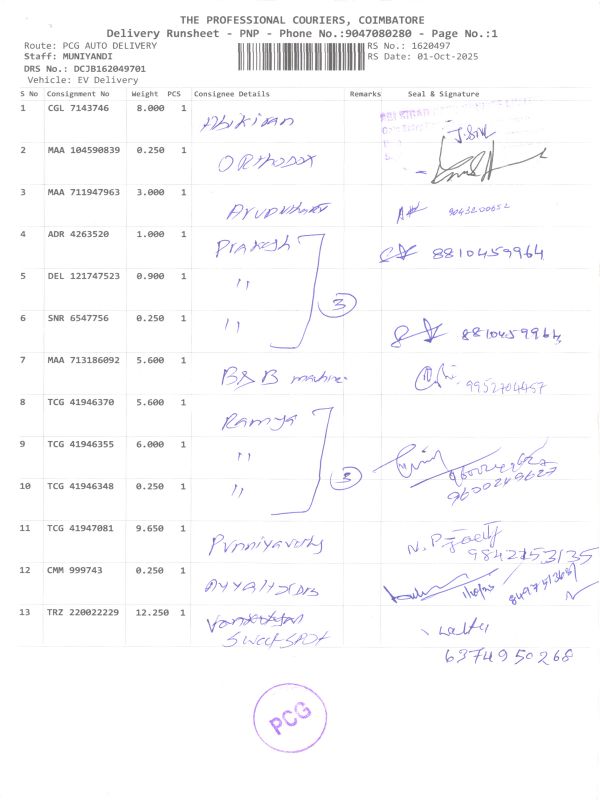 THE PROFESSIONAL COURIERS, COIMBATORE
Delivery Runsheet - PNP - Phone No.:9047080280 - Page No.:1
Route: PCG AUTO DELIVERY RS No.: 1620497
Staff: MUNIYANDI RS Date: 01-Oct-2025
DRS No.: DCJB162049701
Vehicle: EV Delivery
S No Consignment No Weight PCS Consignee Details Remarks Seal & Signature
1 CGL 7143746 8.000 1 Abikiran
2 MAA 104590839 0.250 1 ORthodox
3 MAA 711947963 3.000 1 9043200652
4 ADR 4263520 1.000 1 Prakash 8810459964
5 DEL 121747523 0.900 1 "
3
6 SNR 6547756 0.250 1 " 8810459964
7 MAA 713186092 5.600 1 B&B machine. 9952704457
8 TCG 41946370 5.600 1 Ramya
9 TCG 41946355 6.000 1 " 9600249627
3
10 TCG 41946348 0.250 1 " 9600249627
11 TCG 41947081 9.650 1 N.P 9842153135
12 CMM 999743 0.250 1
13 TRZ 220022229 12.250 1
SweetSpot
6374950268
PCG